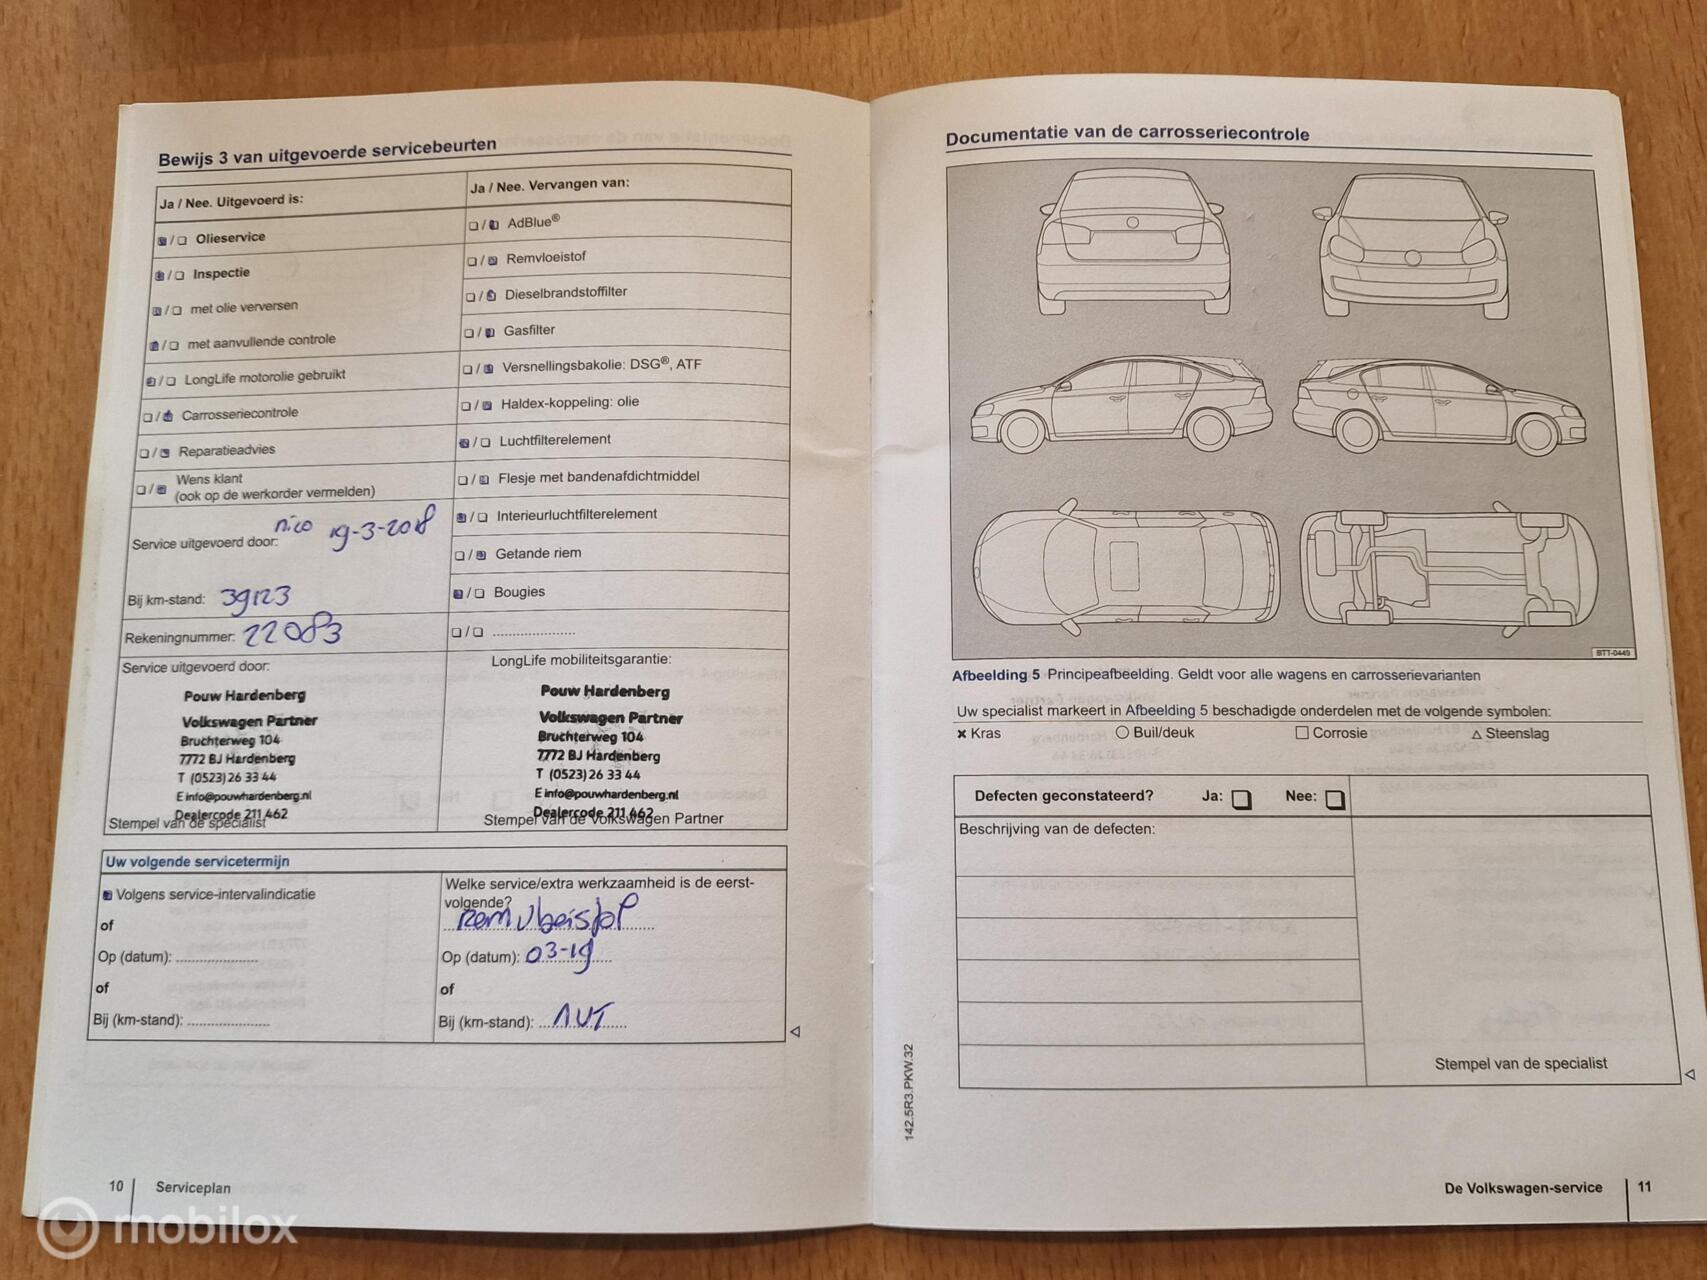 Bewijs 3 van uitgevoerde servicebeurten
Ja / Nee. Uitgevoerd is:
/ Olieservice
/ Inspectie
/ met olie verversen
/ met aanvullende controle
/ LongLife motorolie gebruikt
/ Carrosseriecontrole
/ Reparatieadvies
/ Wens klant
(ook op de werkorder vermelden)
nico 19-3-2018
Service uitgevoerd door:
Bij km-stand: 39123
Rekeningnummer: 22083
Service uitgevoerd door:
Pouw Hardenberg
Volkswagen Partner
Bruchterweg 104
7772 BJ Hardenberg
T (0523) 26 33 44
E info@pouwhardenberg.nl
Dealercode 211 462
Stempel van de specialist
Ja / Nee. Vervangen van:
/ AdBlue®
/ Remvloeistof
/ Dieselbrandstoffilter
/ Gasfilter
/ Versnellingsbakolie: DSG®, ATF
/ Haldex-koppeling: olie
/ Luchtfilterelement
/ Flesje met bandenafdichtmiddel
/ Interieurluchtfilterelement
/ Getande riem
/ Bougies
/ .....................
LongLife mobiliteitsgarantie:
Pouw Hardenberg
Volkswagen Partner
Bruchterweg 104
7772 BJ Hardenberg
T (0523) 26 33 44
E info@pouwhardenberg.nl
Dealercode 211 462
Stempel van de Volkswagen Partner
Uw volgende servicetermijn
Volgens service-intervalindicatie
of
Op (datum): .....................
of
Bij (km-stand): .....................
Welke service/extra werkzaamheid is de eerst-
volgende?
Op (datum): 03-19
of
Bij (km-stand):
10 Serviceplan
Documentatie van de carrosseriecontrole
BTT-0449
Afbeelding 5 Principeafbeelding. Geldt voor alle wagens en carrosserievarianten
Uw specialist markeert in Afbeelding 5 beschadigde onderdelen met de volgende symbolen:
× Kras ○ Buil/deuk □ Corrosie △ Steenslag
Defecten geconstateerd? Ja: □ Nee: □
Beschrijving van de defecten:
Stempel van de specialist
142.5R3.PKW.32
De Volkswagen-service 11
mobilox